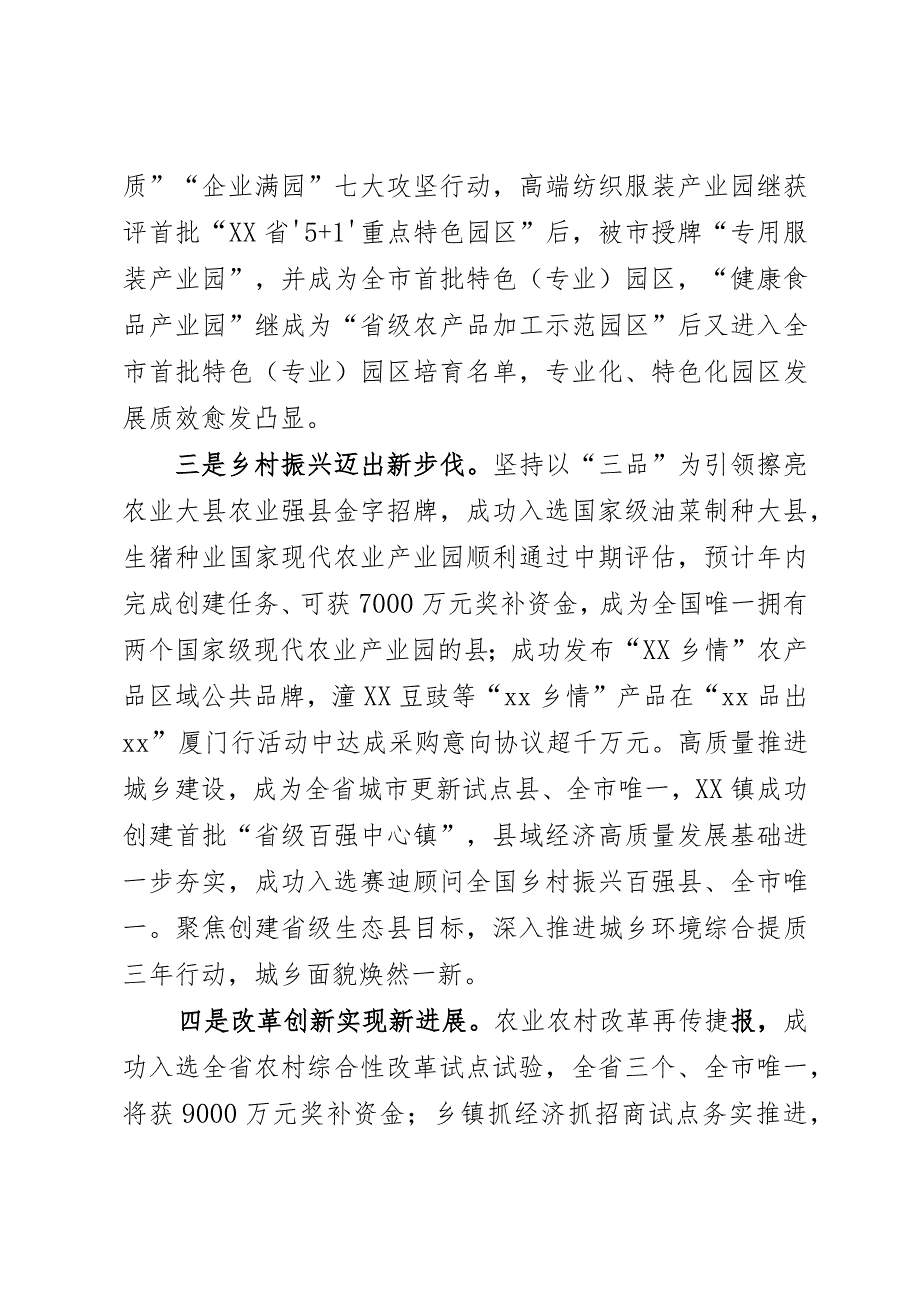 质”“企业满园”七大攻坚行动，高端纺织服装产业园继获
评首批“XX省'5+1'重点特色园区”后，被市授牌“专用服
装产业园”，并成为全市首批特色（专业）园区，“健康食
品产业园”继成为“省级农产品加工示范园区”后又进入全
市首批特色（专业）园区培育名单，专业化、特色化园区发
展质效愈发凸显。
三是乡村振兴迈出新步伐。坚持以“三品”为引领擦亮
农业大县农业强县金字招牌，成功入选国家级油菜制种大县，
生猪种业国家现代农业产业园顺利通过中期评估，预计年内
完成创建任务、可获7000万元奖补资金，成为全国唯一拥有
两个国家级现代农业产业园的县；成功发布“XX乡情”农产
品区域公共品牌，潼XX豆豉等“xx乡情”产品在“xx品出
xx”厦门行活动中达成采购意向协议超千万元。高质量推进
城乡建设，成为全省城市更新试点县、全市唯一，XX镇成功
创建首批“省级百强中心镇”，县域经济高质量发展基础进
一步夯实，成功入选赛迪顾问全国乡村振兴百强县、全市唯
一。聚焦创建省级生态县目标，深入推进城乡环境综合提质
三年行动，城乡面貌焕然一新。
四是改革创新实现新进展。农业农村改革再传捷报，成
功入选全省农村综合性改革试点试验，全省三个、全市唯一，
将获9000万元奖补资金；乡镇抓经济抓招商试点务实推进，